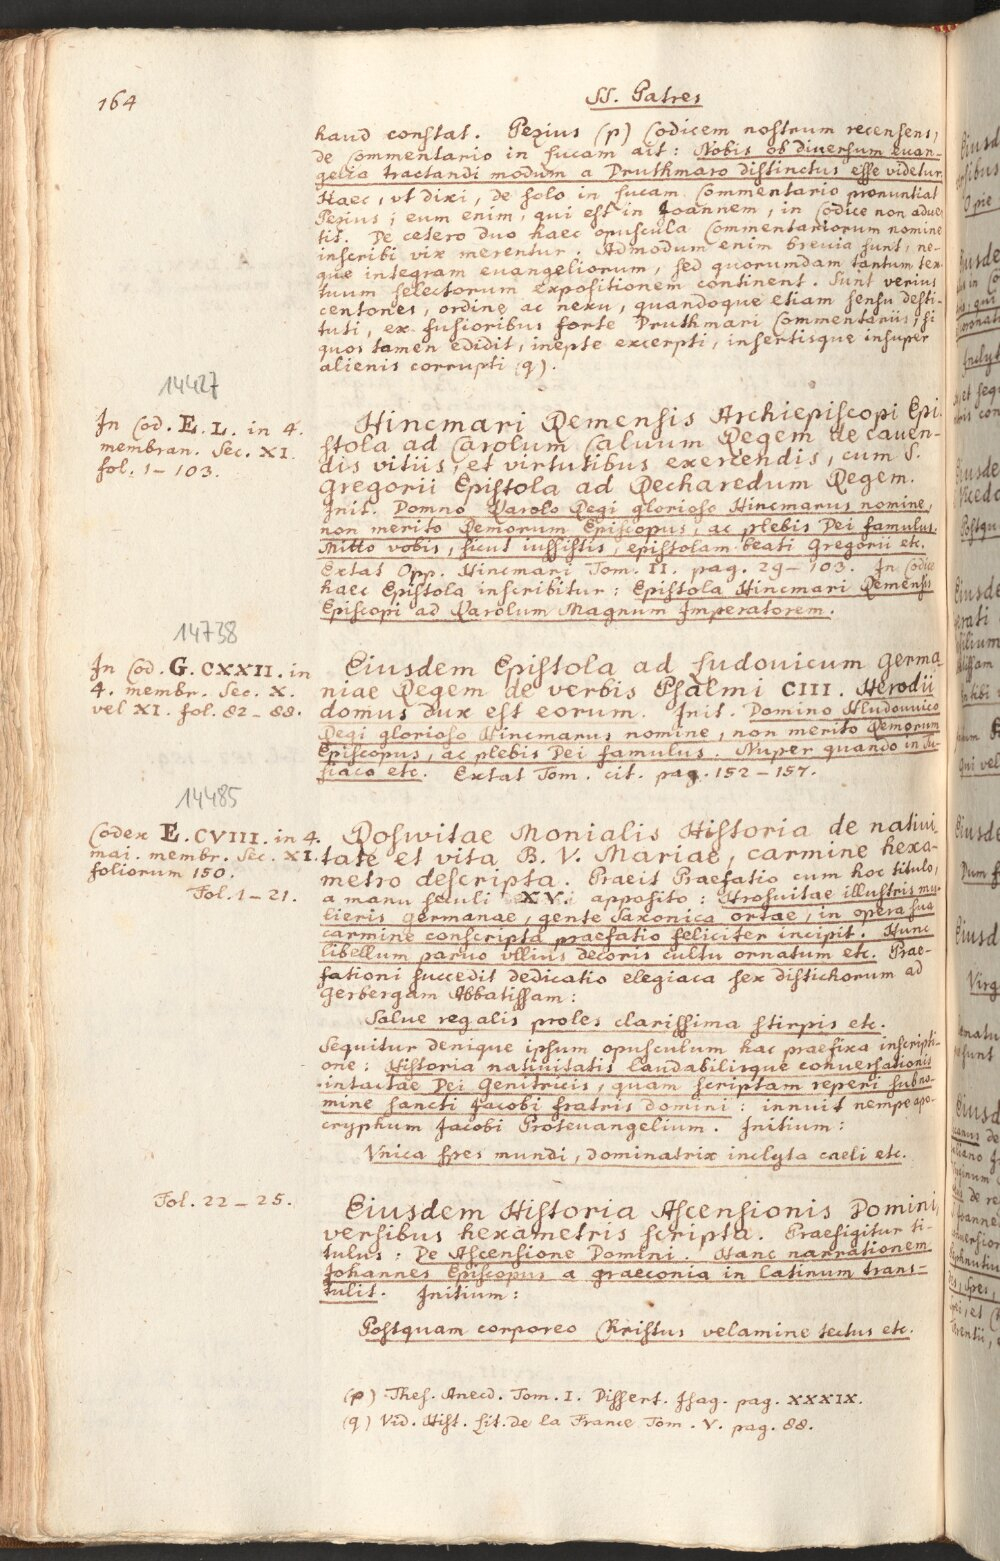 164
SS. Patres
haud constat. Pezius (p) Codicem nostrum recensens,
de Commentario in Lucam ait: Nobis ob diuersum euan-
gelia tractandi modum a Druthmaro distinctus esse videtur.
Haec, vt dixi, de solo in Lucam Commentario pronuntiat
Pezius; eum enim, qui est in Joannem, in Codice non aduer
tit. De cetero duo haec opuscula Commentariorum nomine
inscribi vix merentur. Admodum enim breuia sunt, ne-
que integram euangeliorum, sed quorumdam tantum tex-
tuum selectorum expositionem continent. Sunt verius
centones, ordine ac nexu, quandoque etiam sensu desti-
tuti, ex fusioribus forte Druthmari Commentariis, si
quos tamen edidit, inepte excerpti, insertisque insuper
alienis corrupti (q).
14427
In Cod. E. L. in 4.
membran. Sec. XI.
fol. 1-103.
Hincmari Remensis Archiepiscopi Epi-
stola ad Carolum Caluum Regem de cauen-
dis vitiis, et virtutibus exercendis, cum S.
Gregorii Epistola ad Recharedum Regem.
Init. Domno Karolo Regi glorioso Hincmarus nomine,
non merito Remorum Episcopus, ac plebis Dei famulus.
Mitto vobis, sicut iussistis, epistolam beati Gregorii etc.
Extat Opp. Hincmari Tom. II. pag. 29-103. In Codice
haec Epistola inscribitur: Epistola Hincmari Remensis
Episcopi ad Karolum Magnum Imperatorem.
14738
In Cod. G. CXXII. in
4. membr. Sec. X.
vel XI. fol. 82-88.
Eiusdem Epistola ad Ludouicum Germa-
niae Regem de verbis Psalmi CIII. Herodii
domus dux est eorum. Init. Domino Hludouuico
Regi glorioso Hincmarus nomine, non merito Remorum
Episcopus, ac plebis Dei famulus. Nuper quando in Tu-
siaco etc. Extat Tom. cit. pag. 152-157.
14485
Codex E. CVIII. in 4.
mai. membr. Sec. XI.
foliorum 150.
Fol. 1-21.
Roswitae Monialis Historia de natiui-
tate et vita B. V. Mariae, carmine hexa-
metro descripta. Praeit Praefatio cum hoc titulo,
a manu seculi XV. apposito: Hrosuitae illustris mu-
lieris germanae, gente Saxonica ortae, in opera sua
carmine conscripta praefatio feliciter incipit. Hunc
libellum paruo vllius decoris cultu ornatum etc. Prae-
fationi succedit dedicatio elegiaca sex distichorum ad
Gerbergam Abbatissam:
Salue regalis proles clarissima stirpis etc.
Sequitur denique ipsum opusculum hac praefixa inscripti-
one: Historia natiuitatis laudabilisque conuersationis
intactae Dei Genitricis, quam scriptam reperi sub no-
mine sancti Jacobi fratris domini: innuit nempe apo-
cryphum Jacobi Proteuangelium. Initium:
Vnica spes mundi, dominatrix inclyta caeli etc.
Fol. 22-25.
Eiusdem Historia Ascensionis Domini,
versibus hexametris scripta. Praefigitur ti-
tulus: De Ascensione Domini. Hanc narrationem
Johannes Episcopus a graeconia in latinum trans-
tulit. Initium:
Postquam corporeo Christus velamine tectus etc.
(p) Thes. Anecd. Tom. I. Dissert. Isag. pag. XXXIX.
(q) Vid. Hist. Lit. de la France Tom. V. pag. 88.